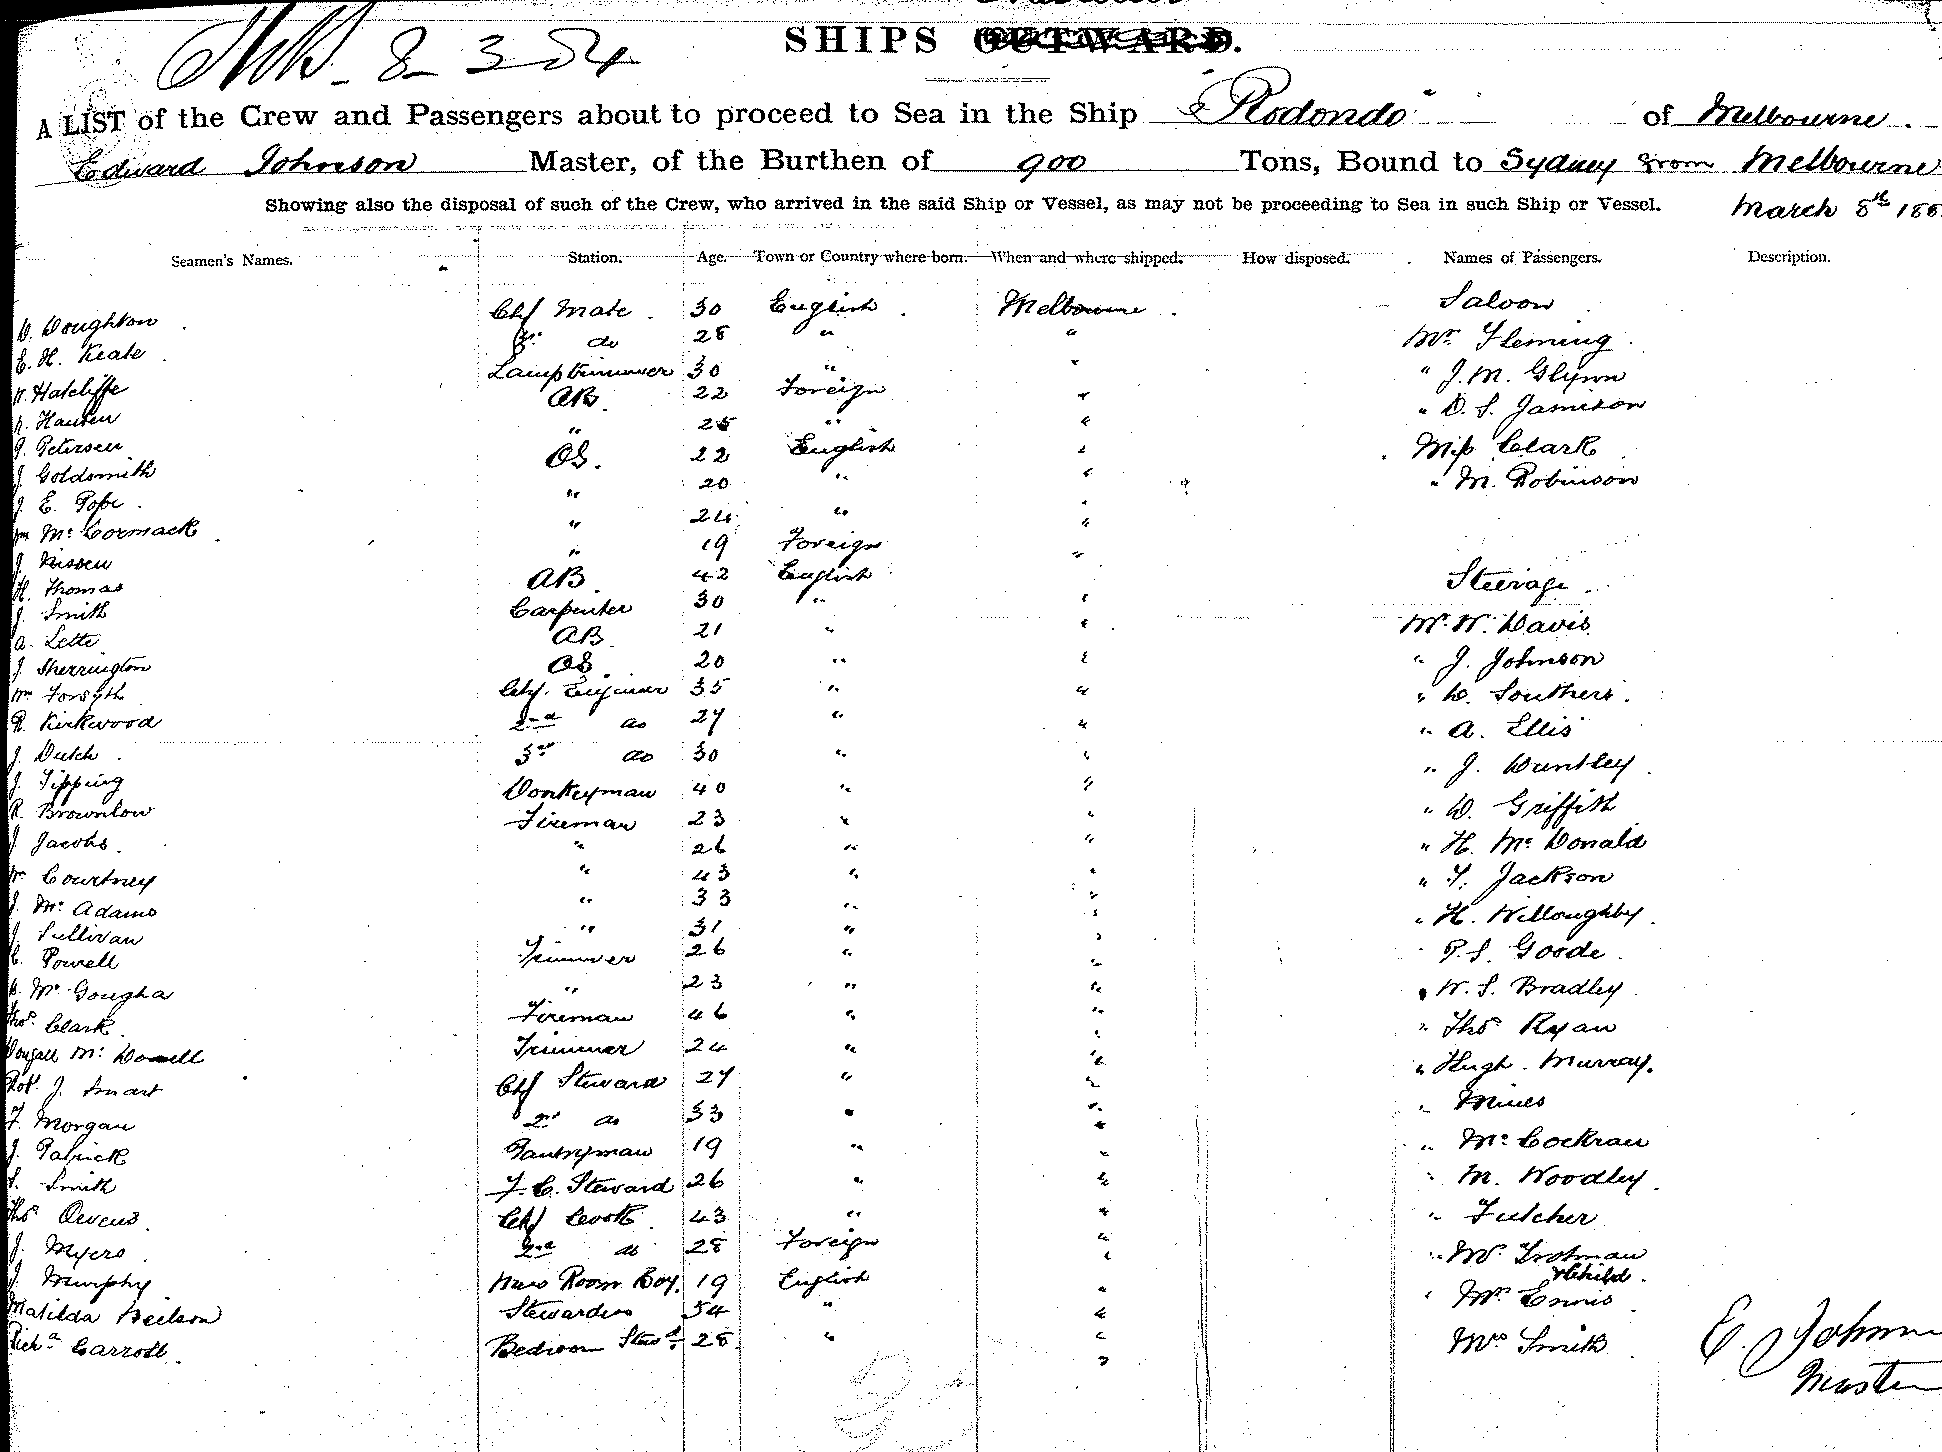 8-3-84
SHIPS OUTWARD.
A LIST of the Crew and Passengers about to proceed to Sea in the Ship "Rodondo" of Melbourne.
Edward Johnson Master, of the Burthen of 900 Tons, Bound to Sydney from Melbourne
Showing also the disposal of such of the Crew, who arrived in the said Ship or Vessel, as may not be proceeding to Sea in such Ship or Vessel. March 8th 188
Seamen's Names. Station. Age. Town or Country where born. When and where shipped. How disposed. Names of Passengers. Description.
D. Doughton Chf Mate 30 English Melbourne Saloon
E. H. Keate 2nd do 28 " " Mr Fleming
Hatcliffe Lamptrimmer 30 " " " J. M. Glynn
Hansen AB 22 Foreign " " D. S. Jamieson
J. Petersen " 25 " " Miss Clark
J. Goldsmith OS. 22 English " " M. Robinson
J. E. Pope " 20 " "
Wm McCormack " 24 " "
J. Nissen " 19 Foreign "
H. Thomas AB 42 English " Steerage
J. Smith Carpenter 30 " "
A. Lette AB 21 " " Mr W. Davis
J. Sherrington OS 20 " " " J. Johnson
Wm Forsyth Chf. Engineer 35 " " " D. Southers
R. Kirkwood 2nd do 27 " " " A. Ellis
J. Dutch 3rd do 30 " " " J. Huntley
J. Tipping Donkeyman 40 " " " D. Griffith
R. Brownlow Fireman 23 " " " H. McDonald
J. Jacobs " 26 " " " T. Jackson
Wm Courtney " 43 " " " H. Willoughby
J. McAdams " 33 " " " P. S. Goode
J. Sullivan " 31 " " " W. S. Bradley
C. Powell Trimmer 26 " " " Thos Ryan
McGougha " 23 " " " Hugh Murray.
Thos. Clark Fireman 46 " " " Mines
Dougall McDonell Trimmer 24 " " " McCockran
Robt. J. Smart Chf Steward 27 " " " M. Woodley
F. Morgan 2nd do 33 " " " Futcher
J. Patrick Pantryman 19 " " " Mr Trotman & Child.
S. Smith F. C. Steward 26 " " " Mr Ennis
Thos Owens Chf Cook 43 " " Mrs Smith
J. Myers 2nd do 28 Foreign "
J. Murphy Mess Room Boy. 19 English "
Matilda Neilson Stewardess 54 " "
Richd Carroll Bedroom Stewd 28 " "
E. Johnson
Master